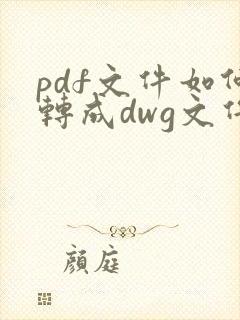 pdf文件如何
轉成dwg文件
顏庭